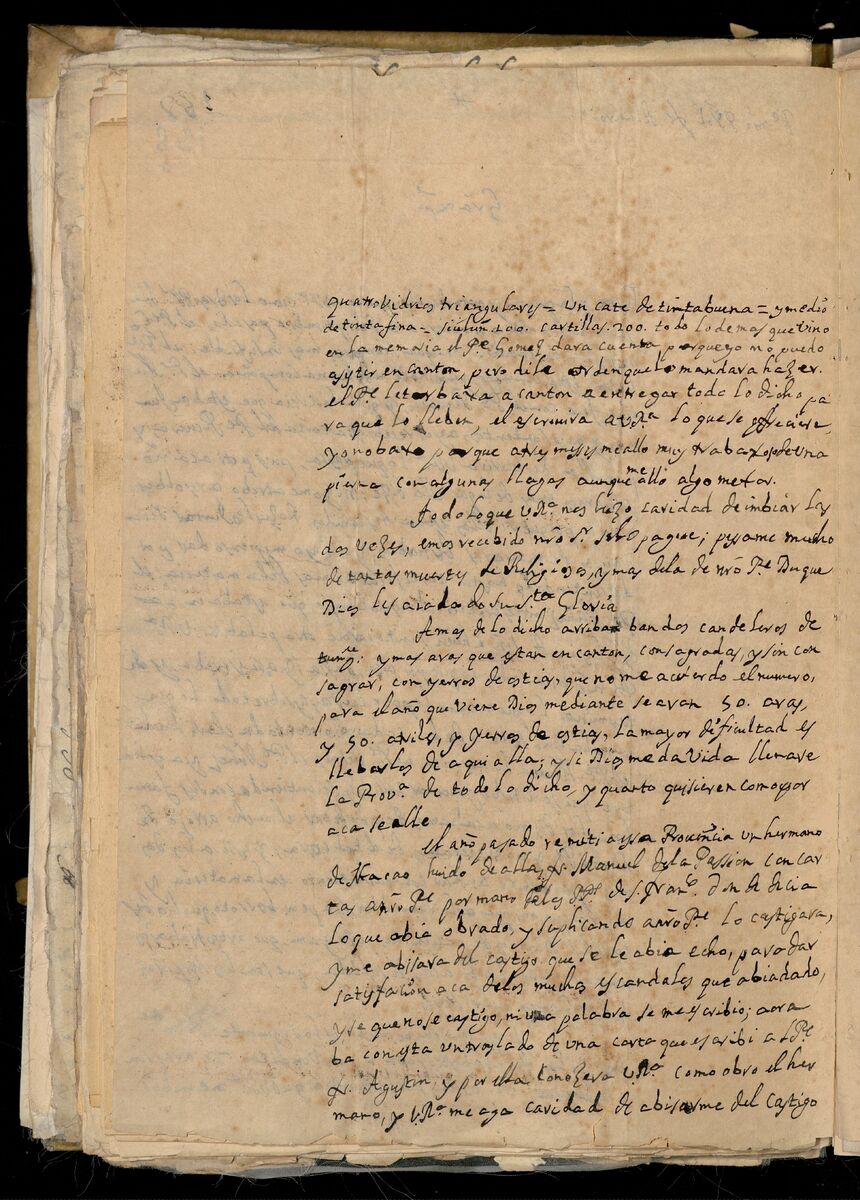 quatro vidrios triangulares = un cate de tinta buena = y medio
de tinta fina = 100. cartillas. 200. todo lo demas que vino
en la memoria el P.e Gomez dara cuenta porque yo no puedo
asistir en canton, pero di le orden que lo mandara hazer.
el P.e baxa a canton a entregar todo lo dicho pa
ra que lo lleben, el escrivira a V.R.a lo que se ofreciere
yo no baxo porque a tres meses me allo muy trabaxoso de una
pierna con algunas llagas aunque me allo algo mejor.
Todo lo que V.R.a nos hizo caridad de imbiar las
dos vezes, emos recebido nro S.r se lo pague; pesame mucho
de tantas muertes de Religiosos, y mas de la de nro P.e Duque
Dios les aia dado su S.ta Gloria
Amas de lo dicho arriba ban dos candeleros de
y mas aras que estan en canton, consagradas, y sin con
sagrar, con yerros de ostias, que no me acuerdo el numero,
para el año que viene Dios mediante se aran 50. aras,
y 50. y yerros de ostias, la mayor dificultad es
llebarlos de aqui alla; y si Dios me da vida llenare
la Prov.a de todo lo dicho, y quanto quisieren como por
aca se alle
El año pasado remiti a essa Provincia un hermano
de Macao huido de alla, fr. Manuel de la Passion con car
tas a nro P.e por mano de los PP.es de S. Fran.co donde decia
lo que abia obrado, y suplicando a nro P.e lo castigara,
y me abisara del castigo que se le abia echo, para dar
satisfacion aca de los muchos escandalos que abia dado,
y se que no se castigo, ni una palabra se me escribio; aora
ba con esta un traslado de una carta que escribi al P.e
fr. Agustin, y por ella conozera V.R.a como obro el her
mano, y V.R.a me aga caridad de abisarme del castigo